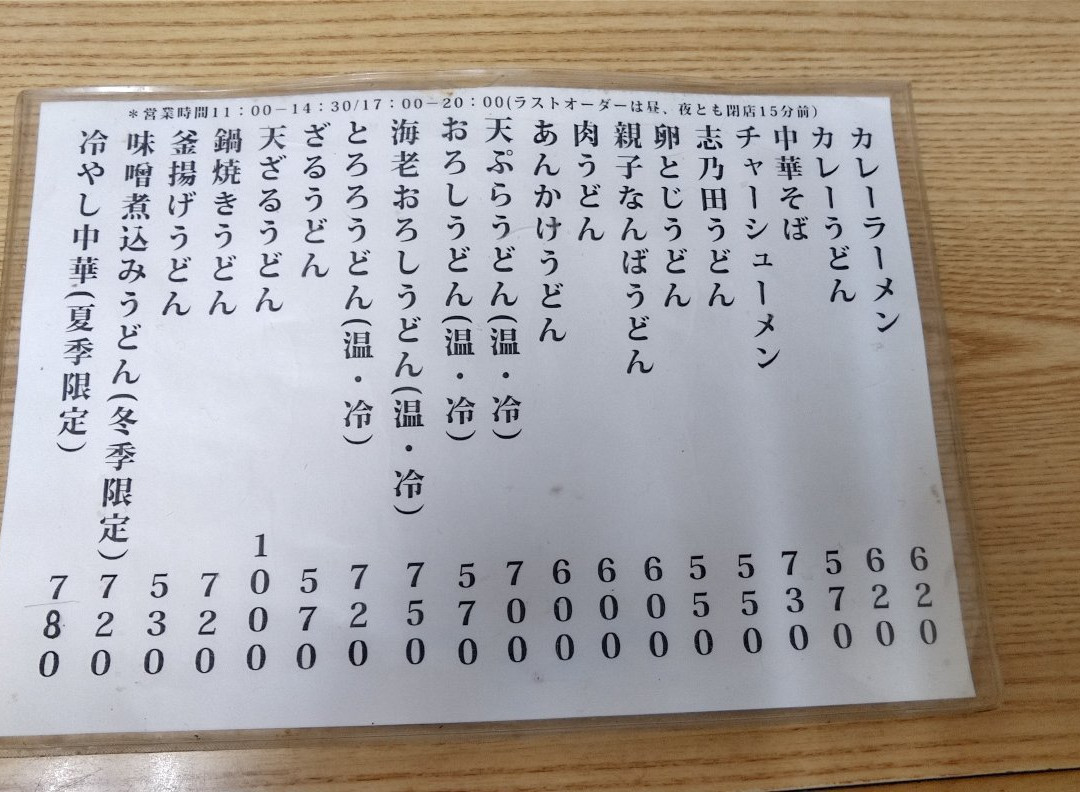 *営業時間11:00-14:30/17:00-20:00(ラストオーダーは昼、夜とも閉店15分前)
カレーラーメン 620
カレーうどん 620
中華そば 570
チャーシューメン 730
志乃田うどん 550
卵とじうどん 550
親子なんばうどん 600
肉うどん 600
あんかけうどん 600
天ぷらうどん(温・冷) 700
おろしうどん(温・冷) 570
海老おろしうどん(温・冷) 750
とろろうどん(温・冷) 720
ざるうどん 570
天ざるうどん 1000
鍋焼きうどん 720
釜揚げうどん 530
味噌煮込みうどん(冬季限定) 720
冷やし中華(夏季限定) 780